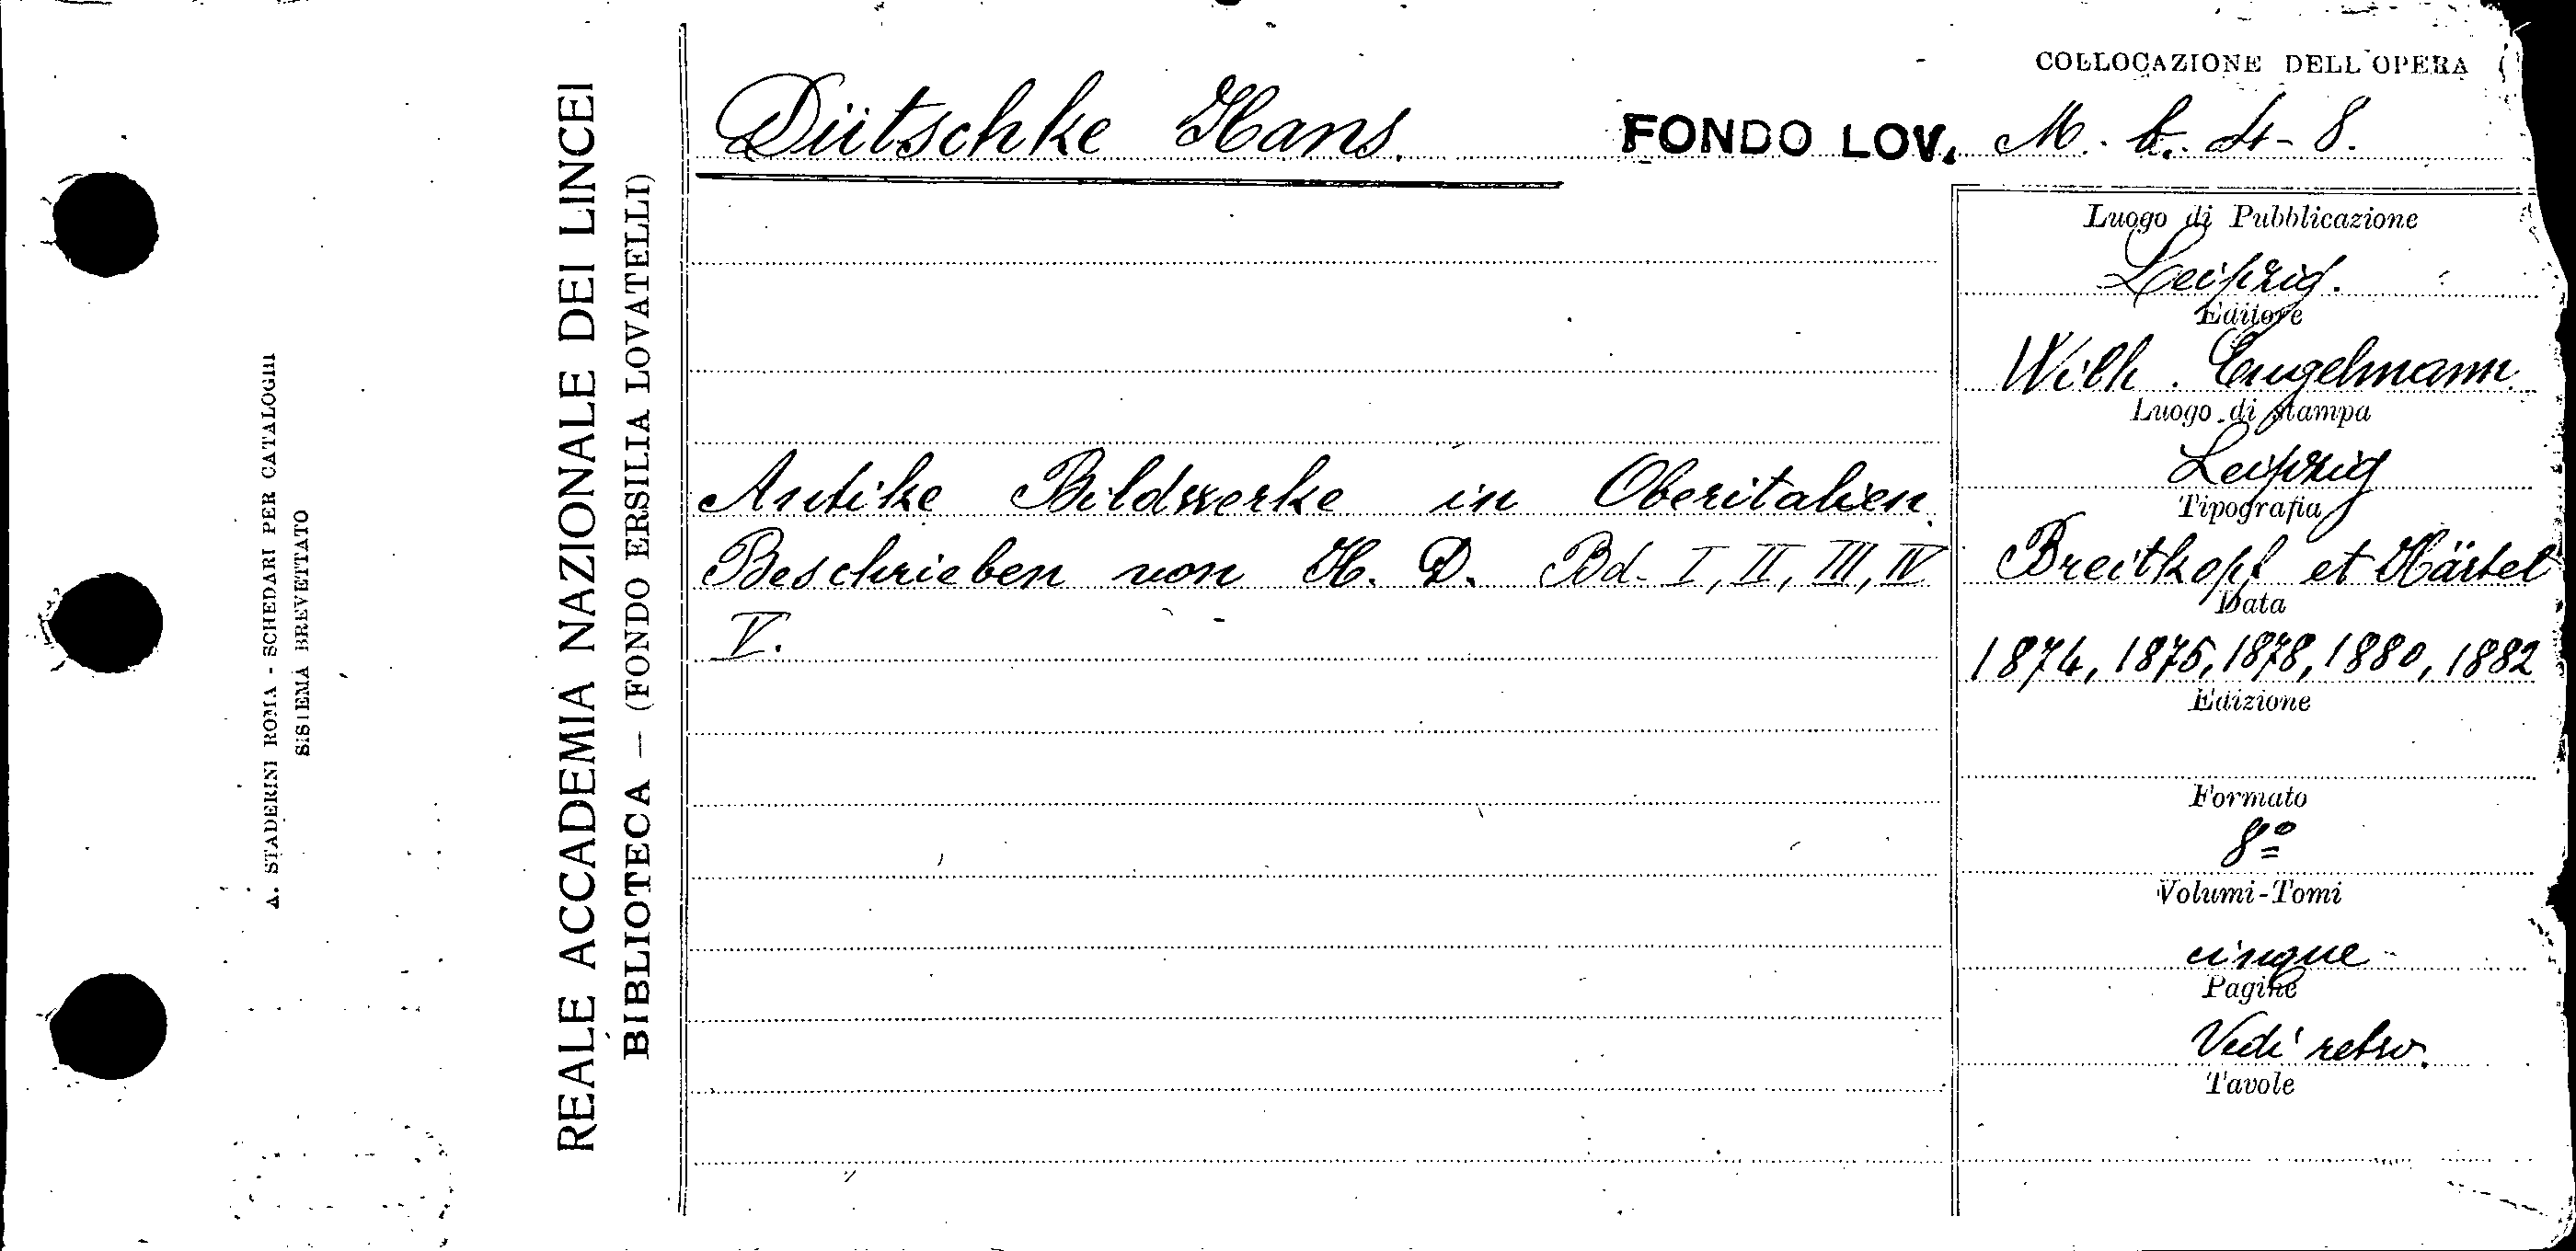 A. STADERNI ROMA - SCHEDARI PER CATALOGHI
SISTEMA BREVETTATO
REALE ACCADEMIA NAZIONALE DEI LINCEI
BIBLIOTECA — (FONDO ERSILIA LOVATELLI)
COLLOCAZIONE DELL'OPERA
Dütschke Hans. FONDO LOV. M. b. 4-8.
Antike Bildwerke in Oberitalien.
Beschrieben von H. D. Bd. I, II, III, IV
V.
Luogo di Pubblicazione
Leipzig.
Editore
Wilh. Engelmann.
Luogo di stampa
Leipzig
Tipografia
Breitkopf et Härtel
Data
1874, 1875, 1878, 1880, 1882
Edizione
Formato
8º
Volumi-Tomi
cinque
Pagine
Vedi retro.
Tavole